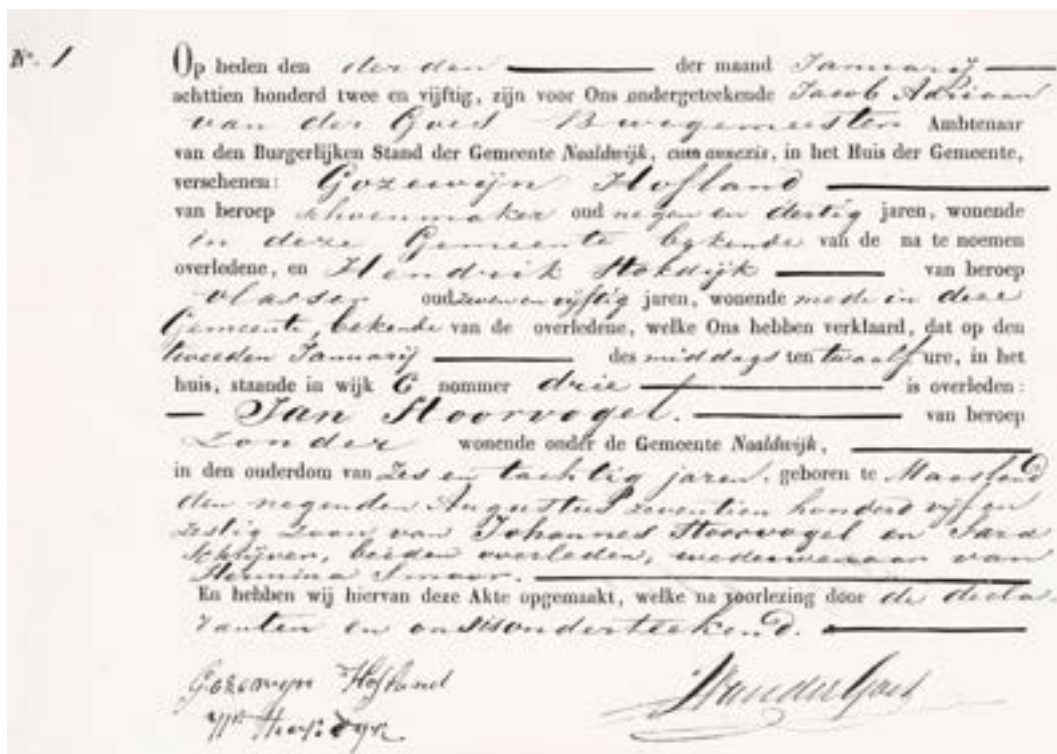 No. 1
Op heden den derden der maand Januarij
achttien honderd twee en vijftig, zijn voor Ons ondergeteekende Jacob Adriaan
van der Goes Burgemeester Ambtenaar
van den Burgerlijken Stand der Gemeente Naaldwijk, cum annexis, in het Huis der Gemeente,
verschenen: Gozewijn Hofland
van beroep schoenmaker oud negen en dertig jaren, wonende
in deze Gemeente bekende van de na te noemen
overledene, en Hendrik van beroep
vlasser oud zeven en vijftig jaren, wonende mede in deze
Gemeente, bekende van de overledene, welke Ons hebben verklaard, dat op den
tweeden Januarij des middags ten twaalf ure, in het
huis, staande in wijk C nommer drie is overleden:
Jan Stoorvogel. van beroep
Zonder wonende onder de Gemeente Naaldwijk,
in den ouderdom van zes en tachtig jaren, geboren te Maasland
den negenden Augustus zeventien honderd vijf en
zestig zoon van Johannes Stoorvogel en Sara
Schrijver, beiden overleden, weduwenaar van
Hermina Smoor.
En hebben wij hiervan deze Akte opgemaakt, welke na voorlezing door de decla-
ranten en ons is onderteekend.
Gozewyn Hofland
VanderGoes